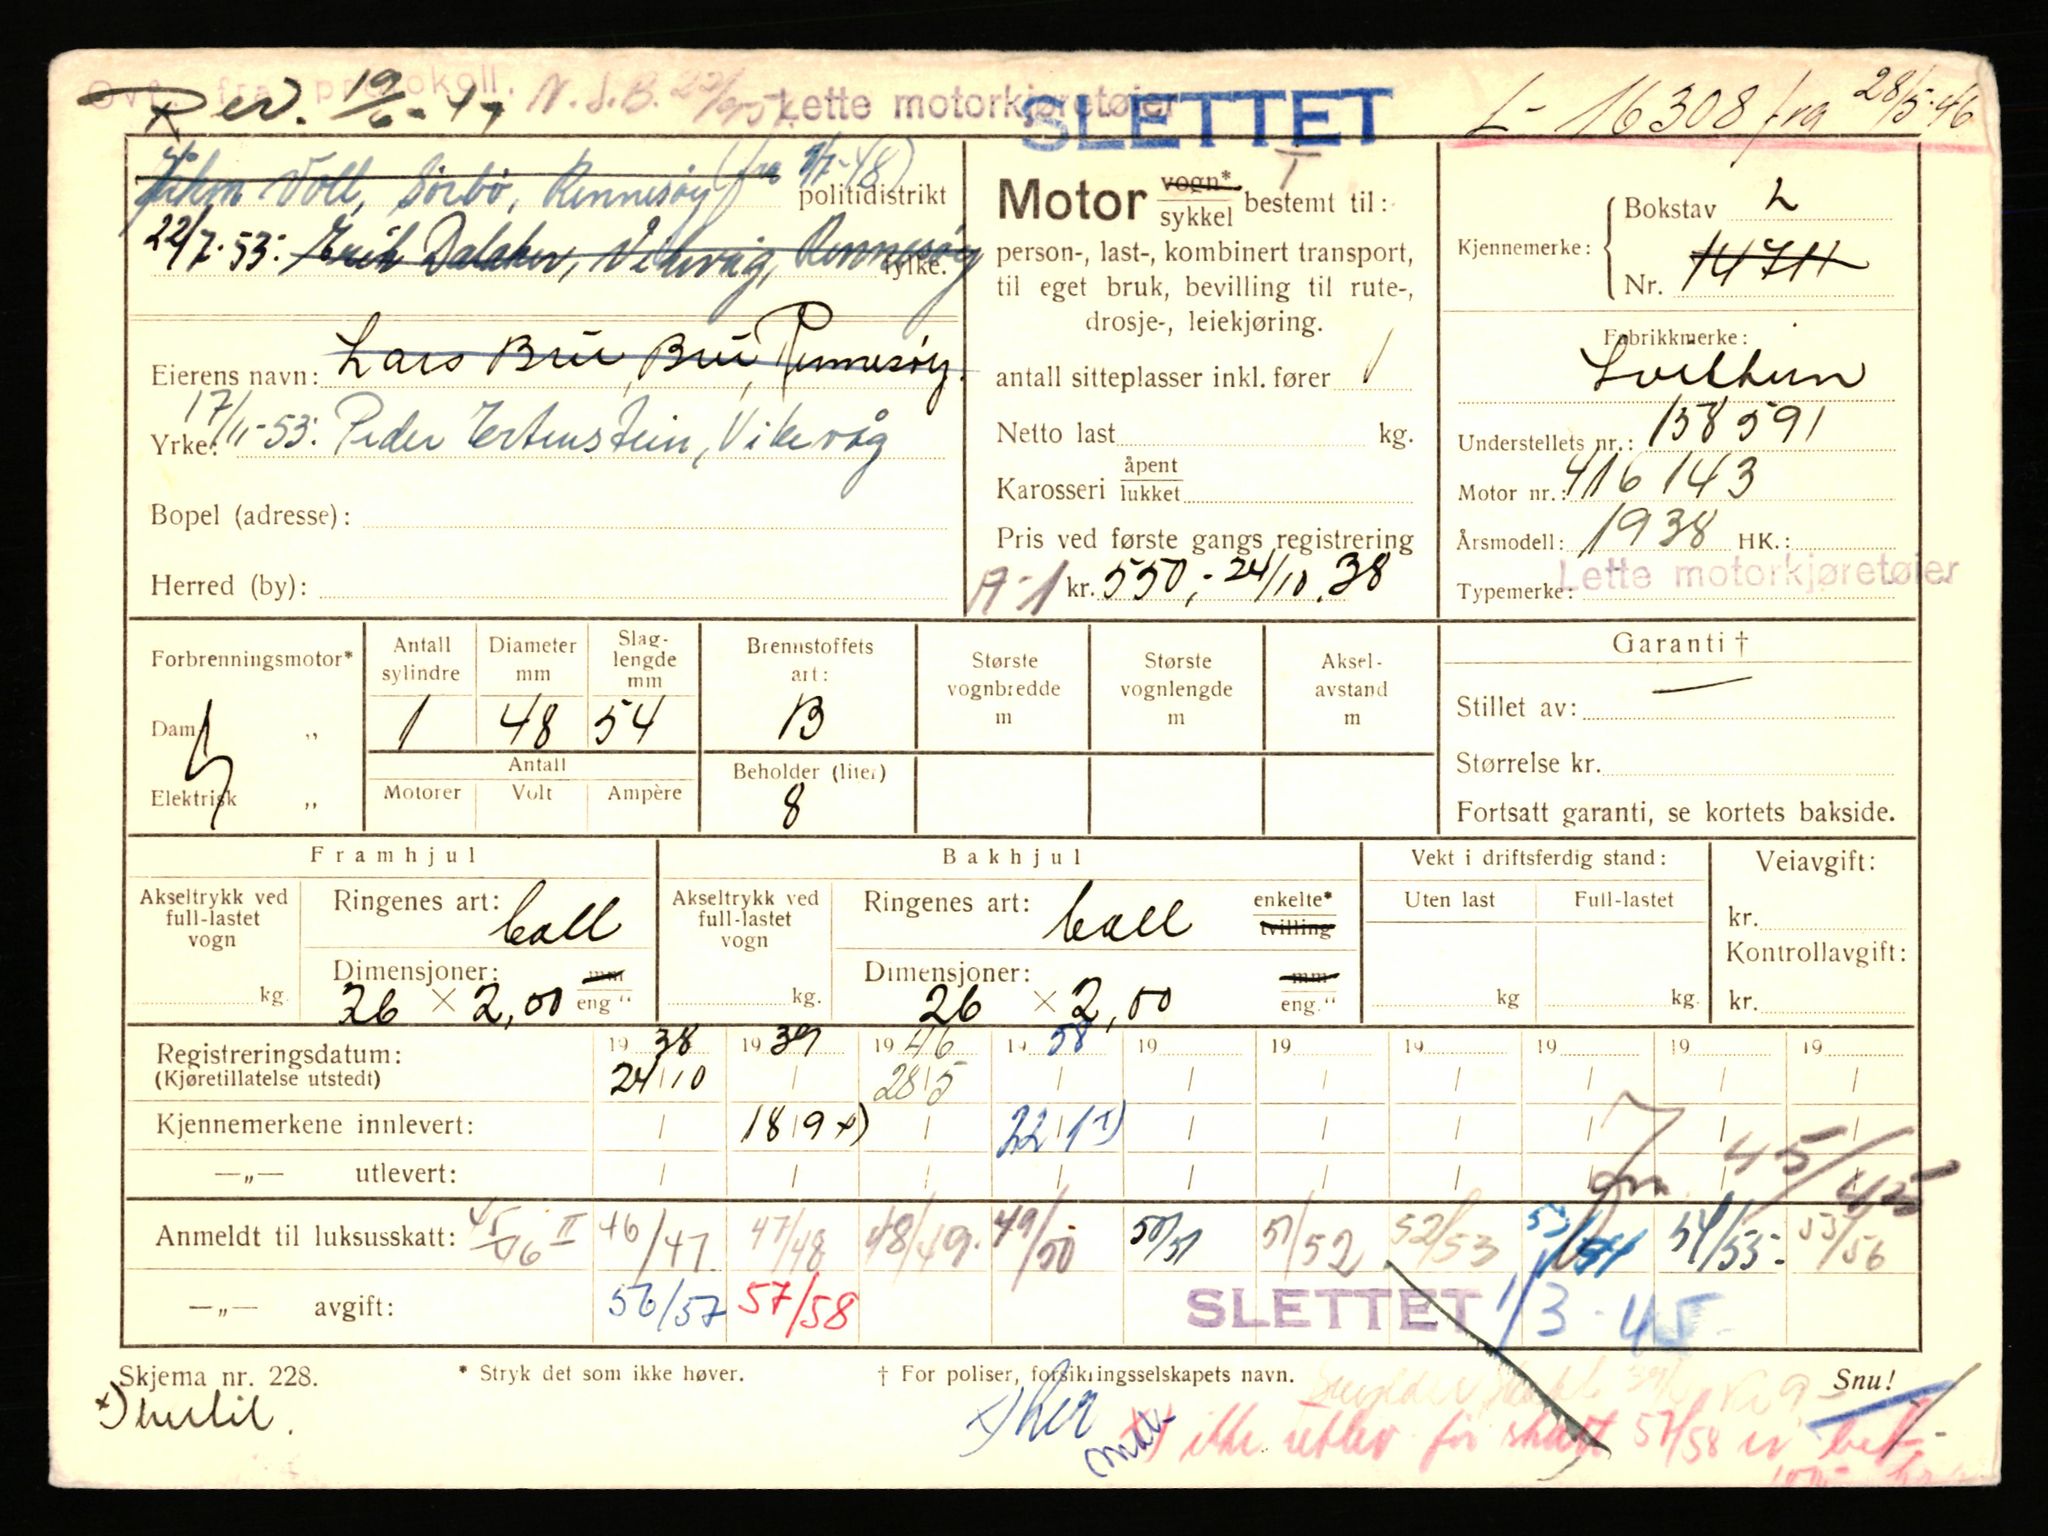 Ovf. fra protokoll. N.S.B.
Rev. 19/6-47
Lette motorkjøretøier
SLETTET
L- 16308 fra 28/5-46
Voll, Sørbø, Rennesøy (fra 9/7-48)
politidistrikt
22/7-53: Erik Dalaker, Vikevåg, Rennesøy
fylke.
Eierens navn: Lars Bru, Bru, Rennesøy.
17/11-53: Peder Ertenstein, Vikevåg
Yrke:
Bopel (adresse):
Herred (by):
Motor vogn* sykkel bestemt til:
person-, last-, kombinert transport,
til eget bruk, bevilling til rute-,
drosje-, leiekjøring.
antall sitteplasser inkl. fører 1
Netto last kg.
Karosseri åpent lukket
Pris ved første gangs registrering
A-1 kr. 550,- 24/10.38
Kjennemerke: Bokstav L
Nr. 14711
Fabrikkmerke:
Svithun
Understellets nr.: 158591
Motor nr.: 416143
Årsmodell: 1938 HK.:
Lette motorkjøretøier
Typemerke:
Forbrenningsmotor*
Damp „
Elektrisk „
Antall sylindre
1
Diameter mm
48
Slag-lengde mm
54
Antall
Motorer Volt Ampère
Brennstoffets art:
B
Beholder (liter)
8
Største vognbredde m
Største vognlengde m
Aksel-avstand m
Garanti †
Stillet av:
Størrelse kr.
Fortsatt garanti, se kortets bakside.
Framhjul
Akseltrykk ved full-lastet vogn
kg.
Ringenes art: ball
Dimensjoner: mm
26 × 2,00 eng"
Bakhjul
Akseltrykk ved full-lastet vogn
kg.
Ringenes art: ball enkelte* tvilling
Dimensjoner: mm
26 × 2,00 eng."
Vekt i driftsferdig stand:
Uten last Full-lastet
kg kg.
Veiavgift:
kr.
Kontrollavgift:
kr.
Registreringsdatum: 19 38 19 39 19 46 19 58 19 19 19 19 19 19
(Kjøretillatelse utstedt) 24/10 28/5
Kjennemerkene innlevert: 18/9 x) 22/1 x)
—„— utlevert:
45/45
Anmeldt til luksusskatt: 45/46 II 46/47 47/48 48/49. 49/50 50/51 51/52 52/53 53/54 54/55- 55/56
—„— avgift: 56/57 57/58
SLETTET 1/3-45
Skjema nr. 228. * Stryk det som ikke høver. † For poliser, forsikringsselskapets navn. Snu!
x) her
ikke utlev før skatt 57/58 er bet.